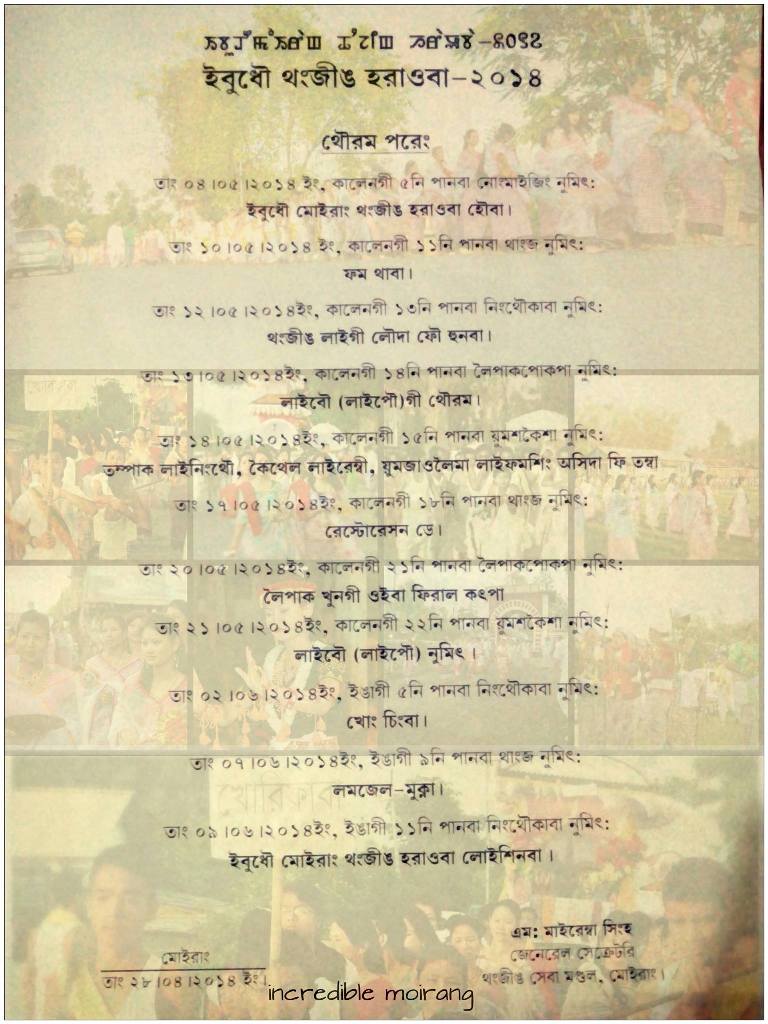 ইবুধৌ থংজীঙ হরাওবা-২০১৪
থৌরম পরেং
তাং ০৪।০৫।২০১৪ ইং, কালেনগী ৫নি পানবা নোংমাইজিং নুমিৎ:
ইবুধৌ মোইরাং থংজীঙ হরাওবা হৌবা।
তাং ১০।০৫।২০১৪ ইং, কালেনগী ১১নি পানবা থাংজ নুমিৎ:
ফম থাবা।
তাং ১২।০৫।২০১৪ইং, কালেনগী ১৩নি পানবা নিংথৌকাবা নুমিৎ:
থংজীঙ লাইগী লৌদা ফৌ হুনবা।
তাং ১৩।০৫।২০১৪ইং, কালেনগী ১৪নি পানবা লৈপাকপোকপা নুমিৎ:
লাইবৌ (লাইপৌ)গী থৌরম।
তাং ১৪।০৫।২০১৪ইং, কালেনগী ১৫নি পানবা য়ুমশকৈশা নুমিৎ:
তম্পাক লাইনিংথৌ, কৈথেল লাইরেম্বী, য়ুমজাওলৈমা লাইফমশিং অসিদা ফি তম্বা
তাং ১৭।০৫।২০১৪ইং, কালেনগী ১৮নি পানবা থাংজ নুমিৎ:
রেস্টোরেসন ডে।
তাং ২০।০৫।২০১৪ইং, কালেনগী ২১নি পানবা লৈপাকপোকপা নুমিৎ:
লৈপাক খুনগী ওইবা ফিরাল কৎপা
তাং ২১।০৫।২০১৪ইং, কালেনগী ২২নি পানবা য়ুমশকৈশা নুমিৎ:
লাইবৌ (লাইপৌ) নুমিৎ।
তাং ০২।০৬।২০১৪ইং, ইঙাগী ৫নি পানবা নিংথৌকাবা নুমিৎ:
খোং চিংবা।
তাং ০৭।০৬।২০১৪ইং, ইঙাগী ৯নি পানবা থাংজ নুমিৎ:
লমজেল-মুক্না।
তাং ০৯।০৬।২০১৪ইং, ইঙাগী ১১নি পানবা নিংথৌকাবা নুমিৎ:
ইবুধৌ মোইরাং থংজীঙ হরাওবা লোইশিনবা।
এম: মাইরেম্বা সিংহ
জেনেরেল সেক্রেটরি
থংজীঙ সেবা মণ্ডল, মোইরাং।
মোইরাং
তাং ২৮।০৪।২০১৪ ইং।
incredible moirang